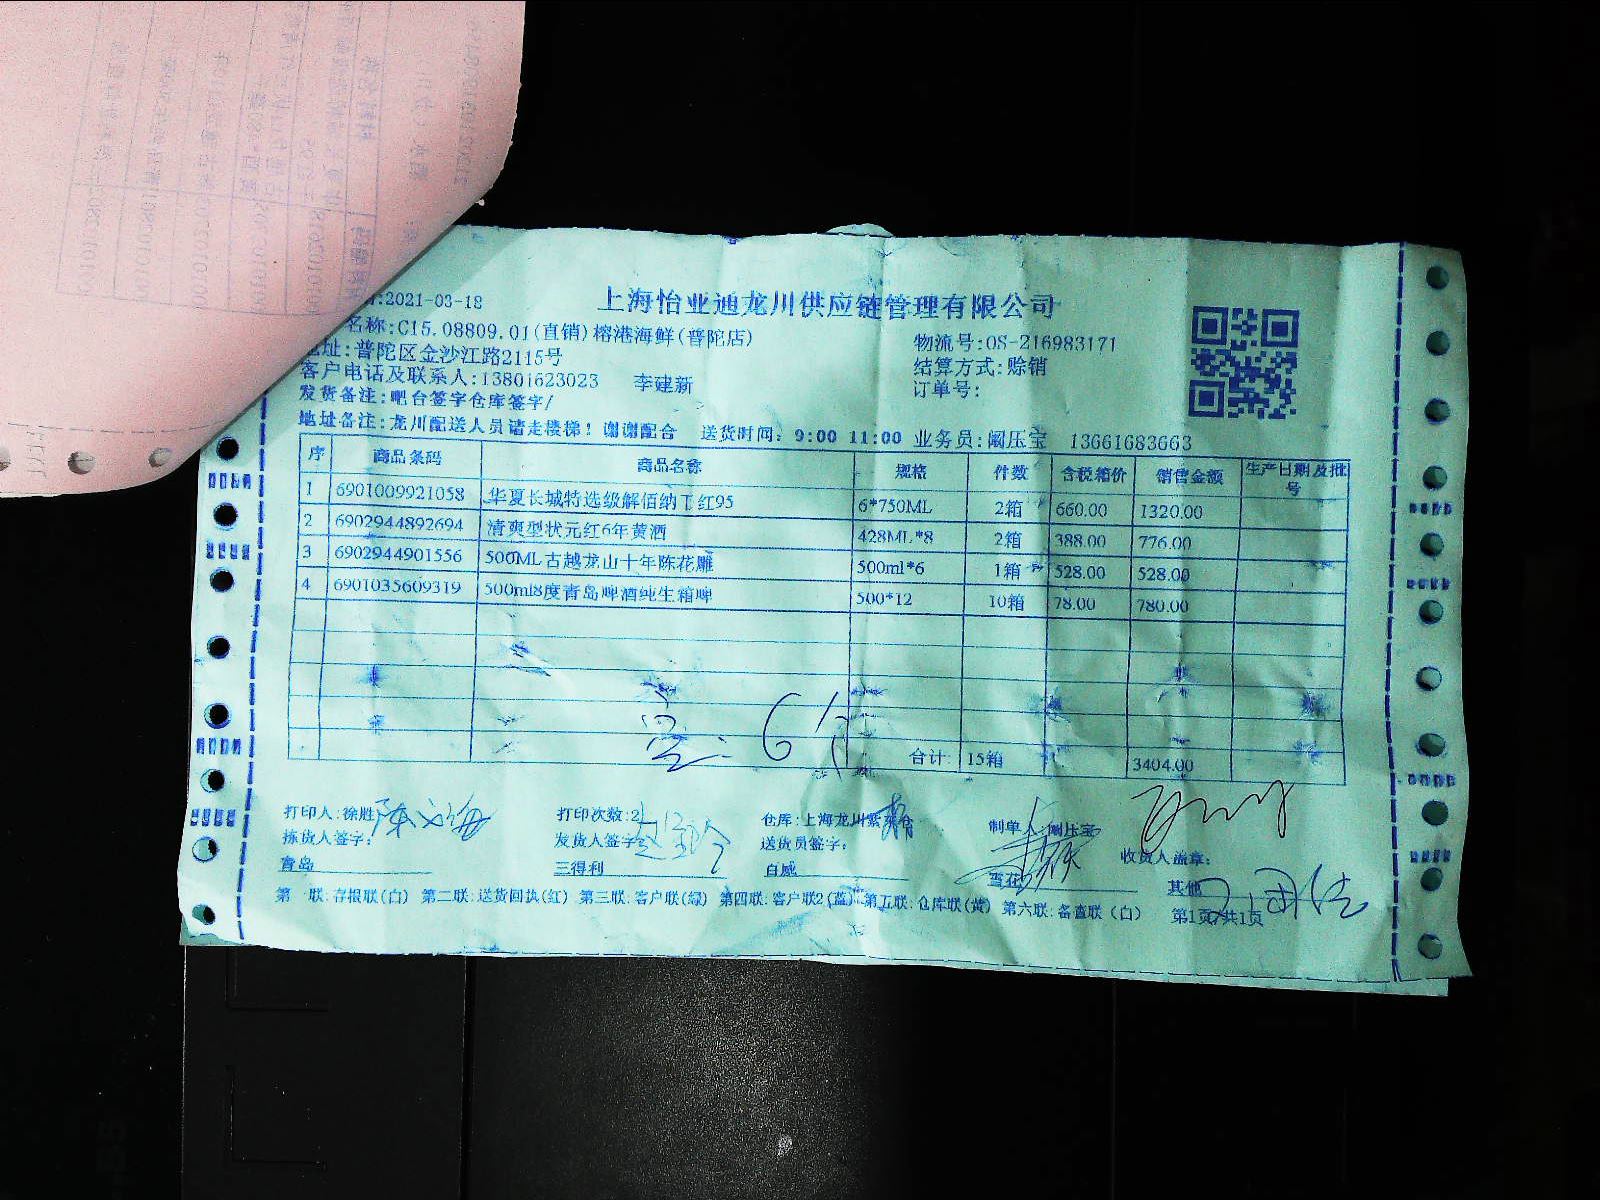 :2021-03-18
上海怡亚通龙川供应链管理有限公司
名称:C15.08809.01(直销)榕港海鲜(普陀店)
物流号:OS-216983171
地址:普陀区金沙江路2115号
结算方式:赊销
客户电话及联系人:13801623023 李建新
订单号:
发货备注:吧台签字仓库签字/
地址备注:龙川配送人员请走楼梯!谢谢配合 送货时间:9:00 11:00 业务员:阚压宝 13661683663
序 商品条码 商品名称 规格 件数 含税箱价 销售金额 生产日期及批号
1 6901009921058 华夏长城特选级解佰纳干红95 6*750ML 2箱 660.00 1320.00
2 6902944892694 清爽型状元红6年黄酒 428ML*8 2箱 388.00 776.00
3 6902944901556 500ML古越龙山十年陈花雕 500ml*6 1箱 528.00 528.00
4 6901035609319 500ml8度青岛啤酒纯生箱啤 500*12 10箱 78.00 780.00
合计: 15箱 3404.00
打印人:徐胜 打印次数:2 仓库:上海龙川紫东仓 制单人:阚压宝
拣货人签字: 发货人签字: 送货员签字: 收货人盖章:
青岛 三得利 百威 雪花 其他
第一联:存根联(白) 第二联:送货回执(红) 第三联:客户联(绿) 第四联:客户联2(蓝) 第五联:仓库联(黄) 第六联:备查联(白) 第1页/共1页